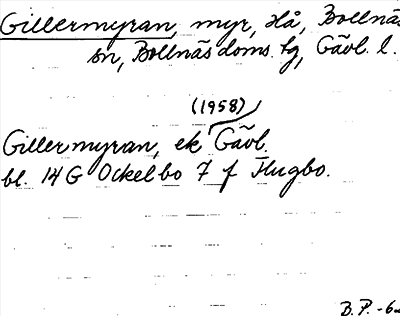 Gillermyran, myr, Hå, Bollnäs
sn, Bollnäs doms. tg, Gävl. l.
(1958)
Gillermyran, ek Gävl.
bl. 14 G Ockelbo 7 f Flugbo.
B.P. -6